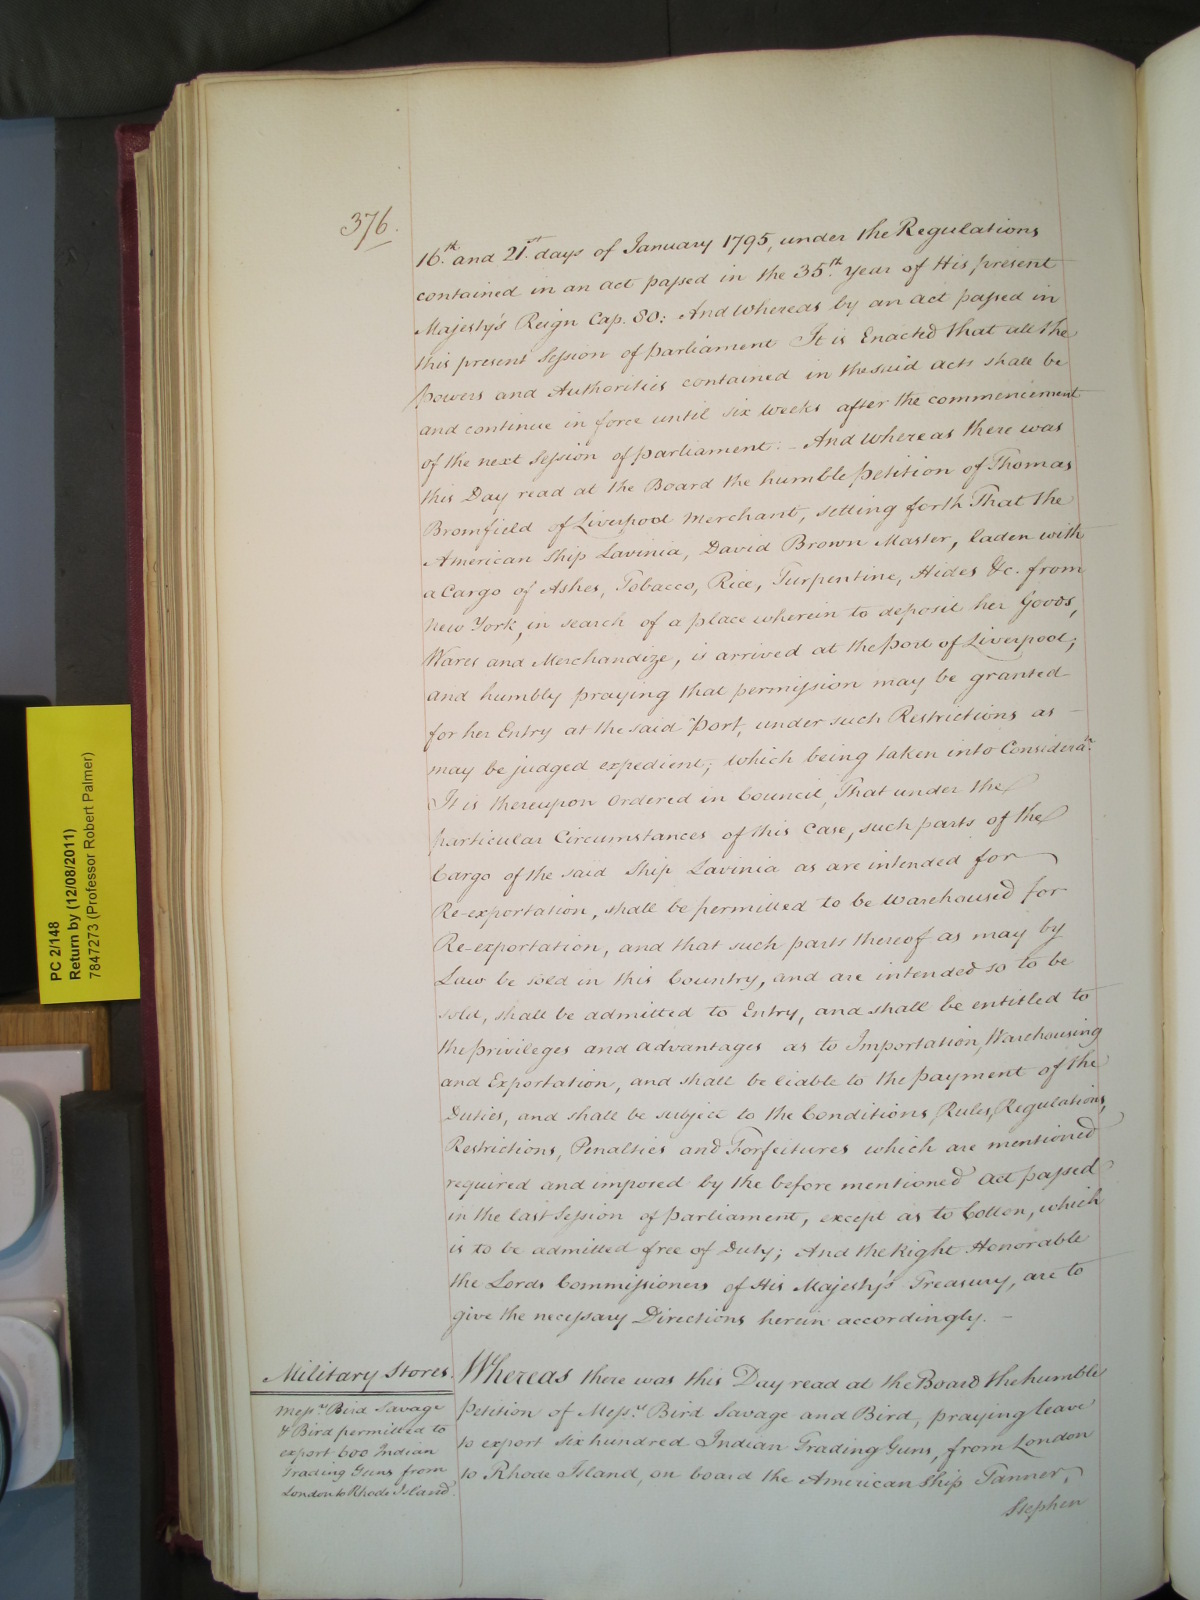 376.
16.th and 21.st days of January 1795, under the Regulations
contained in an act passed in the 35.th year of His present
Majesty's Reign Cap. 80: And Whereas by an act passed in
this present Session of parliament It is Enacted that all the
powers and Authorities contained in the said acts shall be
and continue in force until six weeks after the commencement
of the next Session of parliament: - And Whereas there was
this Day read at the Board the humble petition of Thomas
Bromfield of Liverpool Merchant, setting forth That the
American Ship Lavinia, David Brown Master, laden with
a Cargo of Ashes, Tobacco, Rice, Turpentine, Hides &c. from
New York, in search of a place wherein to deposit her Goods,
Wares and Merchandize, is arrived at the port of Liverpool;
and humbly praying that permission may be granted
for her Entry at the said Port, under such Restrictions as
may be judged expedient; which being taken into Considera.n
It is thereupon Ordered in Council, That under the
particular Circumstances of this Case, such parts of the
Cargo of the said Ship Lavinia as are intended for
Re-exportation, shall be permitted to be warehoused for
Re-exportation, and that such parts thereof as may by
Law be sold in this Country, and are intended so to be
sold, shall be admitted to Entry, and shall be entitled to
the privileges and advantages as to Importation, Warehousing
and Exportation, and shall be liable to the payment of the
Duties, and shall be subject to the Conditions, Rules, Regulations,
Restrictions, Penalties and Forfeitures which are mentioned
required and imposed by the before mentioned Act passed
in the last Session of parliament, except as to Cotton, which
is to be admitted free of Duty; And the Right Honorable
the Lords Commissioners of His Majesty's Treasury, are to
give the necessary Directions herein accordingly. -
Military Stores.
Mess.rs Bird Savage
& Bird permitted to
export 600 Indian
Trading Guns from
London to Rhode Island.
Whereas there was this Day read at the Board the humble
petition of Mess.rs Bird Savage and Bird, praying leave
to export six hundred Indian Trading Guns, from London
to Rhode Island, on board the American Ship Tanner,
Stephen
PC 2/148
Return by (12/08/2011)
7847273 (Professor Robert Palmer)